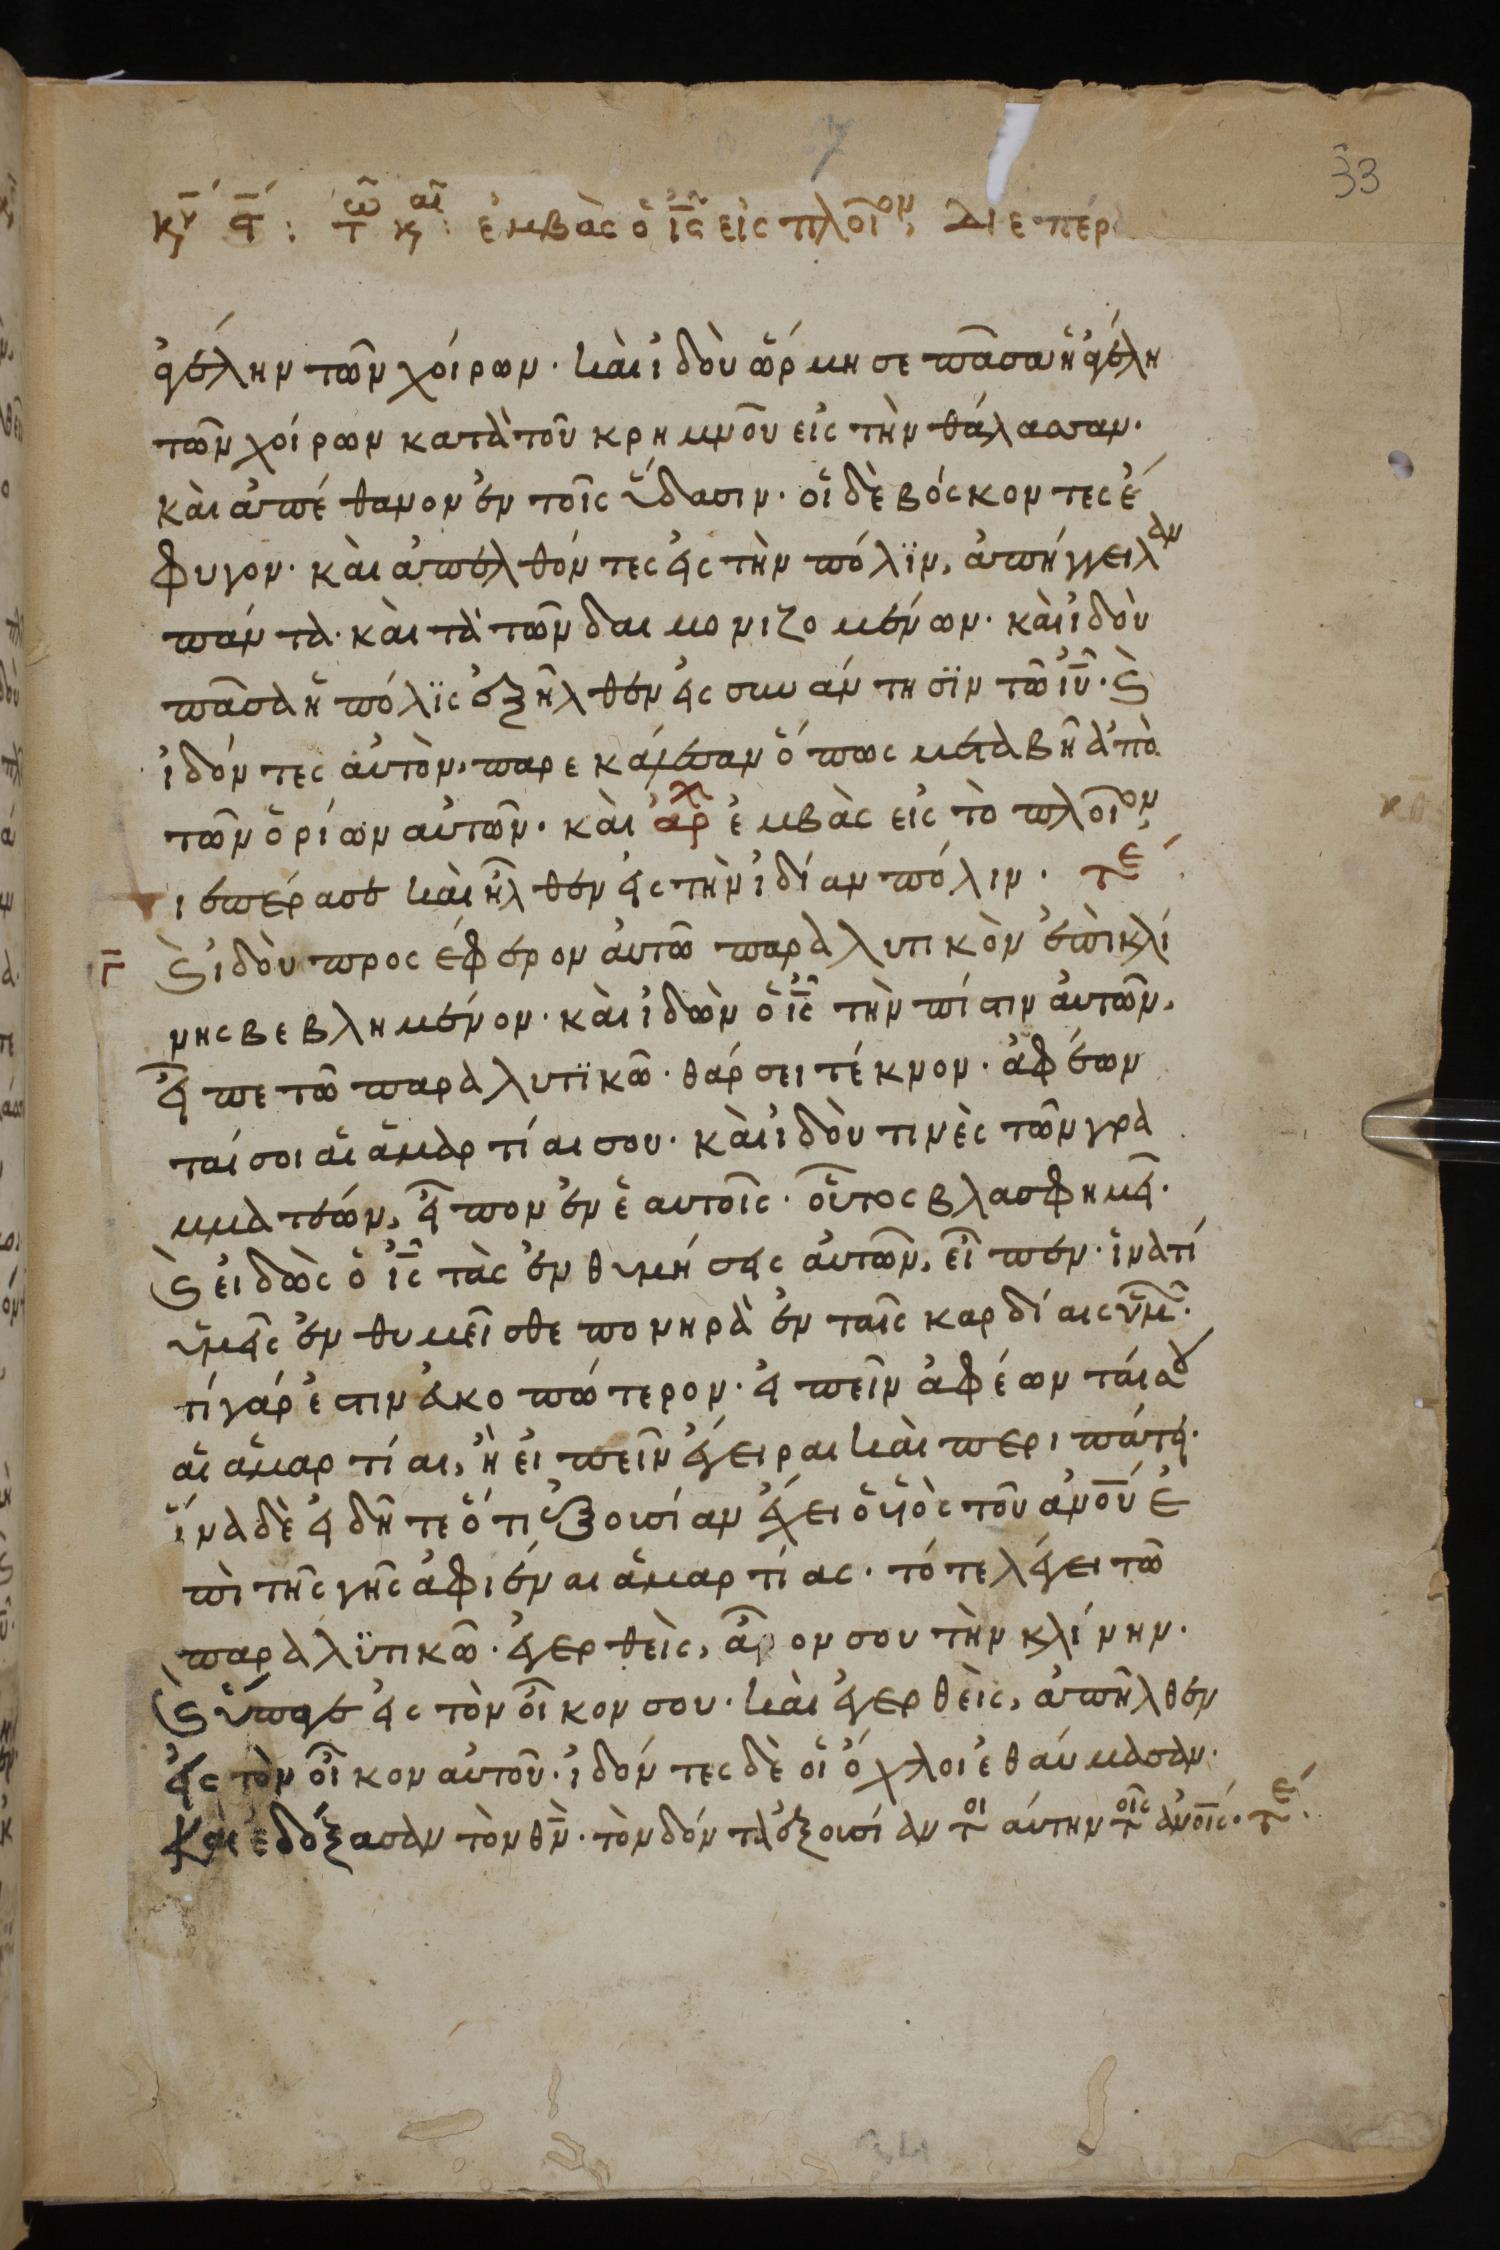 33
κυ ϛ: τω και: ἐμβὰς ὁ ἰς εἰς πλοῖον, διεπέρ
ἀγέλην τῶν χοίρων· καὶ ἰδοὺ ὥρμησε πᾶσα ἡ ἀγέλη
τῶν χοίρων κατὰ τοῦ κρημνοῦ εἰς τὴν θάλασσαν·
καὶ ἀπέθανον ἐν τοῖς ὕδασιν· οἱ δὲ βόσκοντες ἔ
φυγον· καὶ ἀπελθόντες εἰς τὴν πόλϊν, ἀπήγγειλαν
πάντα· καὶ τὰ τῶν δαιμονιζομένων· καὶ ἰδοὺ
πᾶσα ἡ πόλϊς ἐξῆλθεν εἰς συνάντησϊν τῶ ἰυ· καὶ
ἰδόντες αὐτὸν, παρεκάλεσαν ὅπως μεταβῆ ἀπὸ
τῶν ὁρίων αὐτῶν· καὶ ἀρχ ἐμβὰς εἰς τὸ πλοῖον,
ιεπέρασε καὶ ἦλθεν εἰς τὴν ἰδίαν πόλιν· τε
γ καὶ ἰδοὺ προσέφερον αὐτῶ παραλυτικὸν ἐπὶ κλί
νης βεβλημένον· καὶ ἰδὼν ὁ ἰς τὴν πίστιν αὐτῶν,
εἶπε τῶ παραλυτϊκῶ· θάρσει τέκνον· ἀφέων
ταί σοι αἱ ἁμαρτίαι σου· καὶ ἰδοὺ τινὲς τῶν γρα
μματέων, εἶπον ἐν ἑαυτοῖς· οὗτος βλασφημεῖ·
καὶ εἰδὼς ὁ ἰς τὰς ἐνθυμήσεις αὐτῶν, εἶπεν· ἱνατί
ὑμεῖς ἐνθυμεῖσθε πονηρὰ ἐν ταῖς καρδίαις ὑμῶν·
τί γάρ ἐστιν εὐκοπώτερον· εἰπεῖν ἀφέωνταί σου
αἱ ἁμαρτίαι, ἢ εἰπεῖν ἔγειραι καὶ περιπάτει·
ἵνα δὲ εἰδῆτε ὅτι ἐξουσίαν ἔχει ὁ υἱὸς τοῦ ἀνου ἐ
πὶ τῆς γῆς ἀφιέναι ἁμαρτίας· τότε λέγει τῶ
παραλϋτικῶ· ἐγερθεὶς, ἆρον σου τὴν κλίνην·
καὶ ὕπαγε εἰς τὸν οἶκον σου· καὶ ἐγερθεὶς, ἀπῆλθεν
εἰς τὸν οἶκον αὐτοῦ· ἰδόντες δὲ οἱ ὄχλοι ἐθαύμασαν·
Καὶ ἐδόξασαν τὸν θν· τὸν δόντα ἐξουσίαν τοιαύτην τοῖς ἀνοις· τε